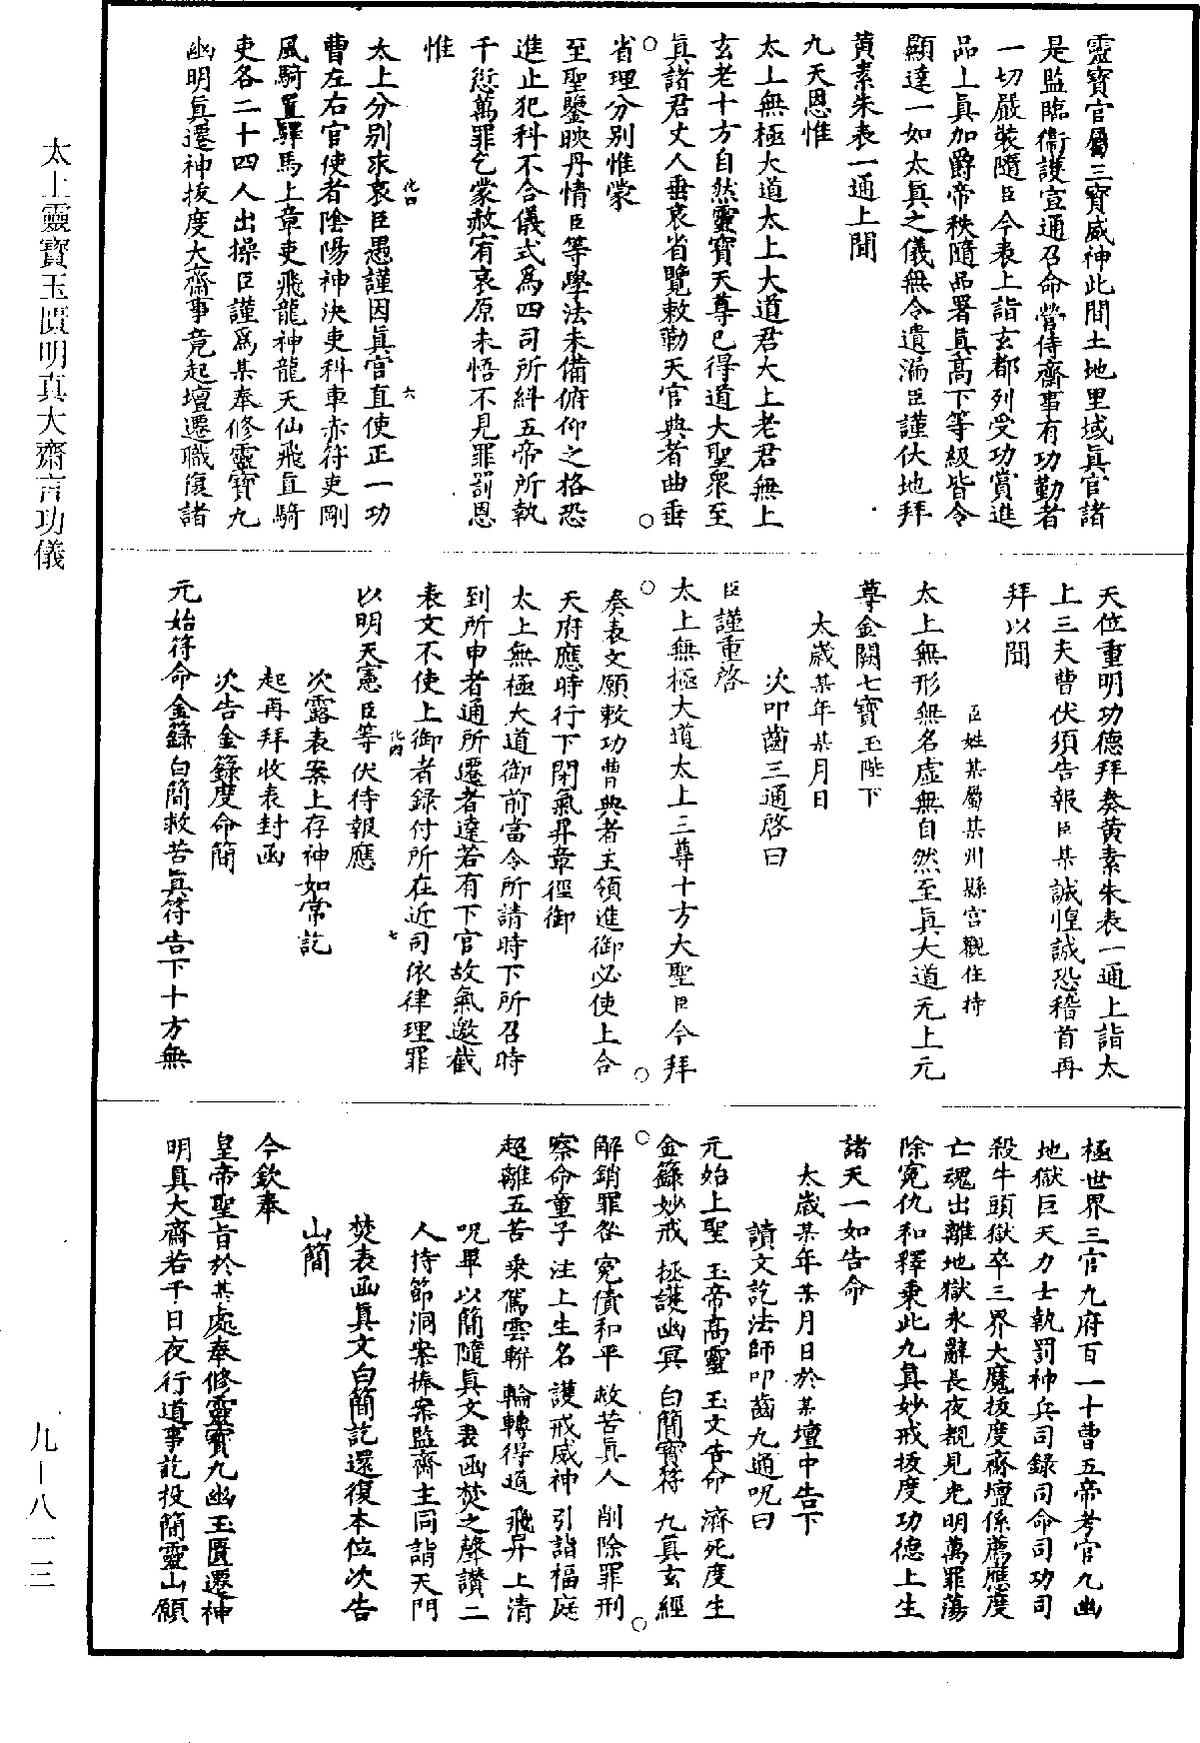 靈寶官屬三寶威神此間土地里域眞官諸
是監臨衞護宣通召命營侍齋事有功勤者
一切嚴裝隨臣今表上詣玄都列受功賞進
品上眞加爵帝秩隨品署眞高下等級皆令
顯達一如太眞之儀無令遺漏臣謹伏地拜
黃素朱表一通上聞
九天恩惟
太上無極大道太上大道君太上老君無上
玄老十方自然靈寶天尊已得道大聖衆至
眞諸君丈人垂哀省覽敕勤天官典者曲垂
省理分別惟蒙
至聖鑒映丹情臣等學法未備俯仰之格恐
進止犯科不合儀式爲四司所糾五帝所執
千愆萬罪乞蒙赦宥哀原未悟不見罪罰恩
惟
太上分別求哀臣愚謹因眞官直使正一功
化四
六
曹左右官使者陰陽神決吏科車赤符吏剛
風騎置驛馬上章吏飛龍神龍天仙飛眞騎
吏各二十四人出操臣謹爲某奉修靈寶九
幽明眞遷神拔度大齋事竟起壇遷職復諸
天位重明功德拜奏黃素朱表一通上詣太
上三天曹伏須告報臣某誠惶誠恐稽首再
拜以聞
臣姓某屬某州縣宮觀住持
太上無形無名虛無自然至眞大道无上元
尊金闕七寶玉陛下
太歲某年某月日
次叩齒三通啓曰
臣謹重啓
太上無極大道太上三尊十方大聖臣今拜
奏表文願敕功曹典者主領進御必使上合
天府應時行下閉氣昇章徑御
太上無極大道御前當令所請時下所召時
到所申者通所遷者達若有下官故氣邀截
表文不使上御者録付所在近司依律理罪
化四
七
以明天憲臣等伏待報應
次露表案上存神如常訖
起再拜收表封函
次告金籙度命簡
元始符命金籙白簡救苦眞符告下十方無
極世界三官九府百一十曹五帝考官九幽
地獄巨天力士執罰神兵司錄司命司功司
殺牛頭獄卒三界大魔拔度齋壇係薦應度
亡魂出離地獄永辭長夜覩見光明萬罪蕩
除冤仇和釋乘此九眞妙戒拔度功德上生
諸天一如告命
太歲某年某月日於某壇中告下
讀文訖法師叩齒九通呪曰
元始上聖　玉帝高靈　玉文告命　濟死度生
金籙妙戒　拯護幽冥　白簡寶符　九眞玄經
解銷罪咎　冤債和平　救苦眞人　削除罪刑
察命童子　注上生名　護戒威神　引詣福庭
超離五苦　乘駕雲軿　輪轉得過　飛昇上清
呪畢以簡隨眞文表函焚之聲讚二
人持節洞案捧案監齋主同詣天門
焚表函眞文白簡訖還復本位次告
山簡
今欽奉
皇帝聖旨於某處奉修靈寶九幽玉匱遷神
明眞大齋若干日夜行道事訖投簡靈山願
太上靈寶玉匱明真大齋言功儀
九—八一三